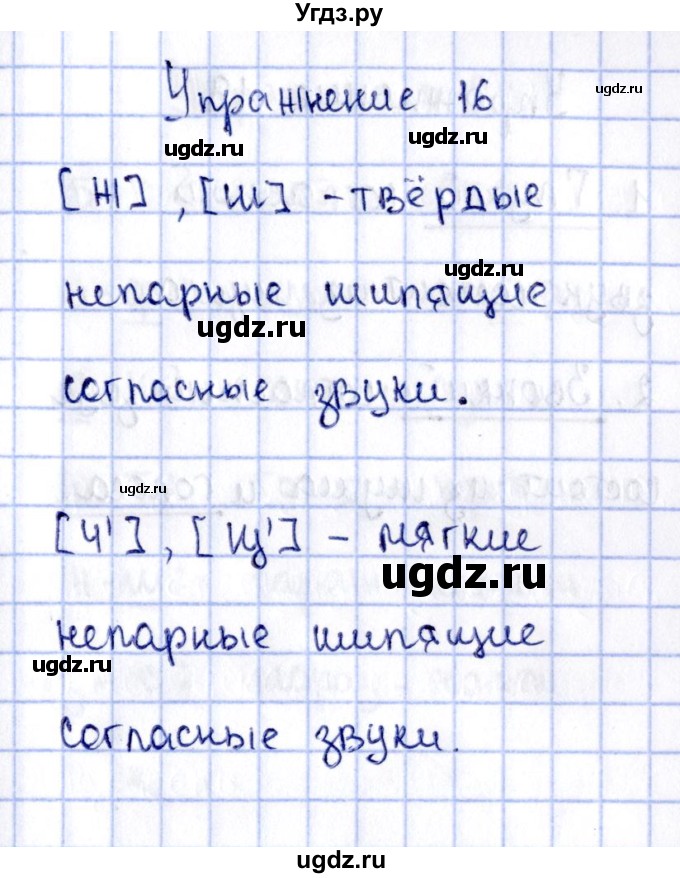 Угдз.ру
Упражнение 16
ugdz.ru
ugdz.ru
[Ж], [Ш] - твёрдые
ugdz.ru
непарные шипящие
ugdz.ru
согласные звуки.
ugdz.ru
[Ч'], [Щ'] - мягкие
ugdz.ru
непарные шипящие
ugdz.ru
согласные звуки.
ugdz.ru